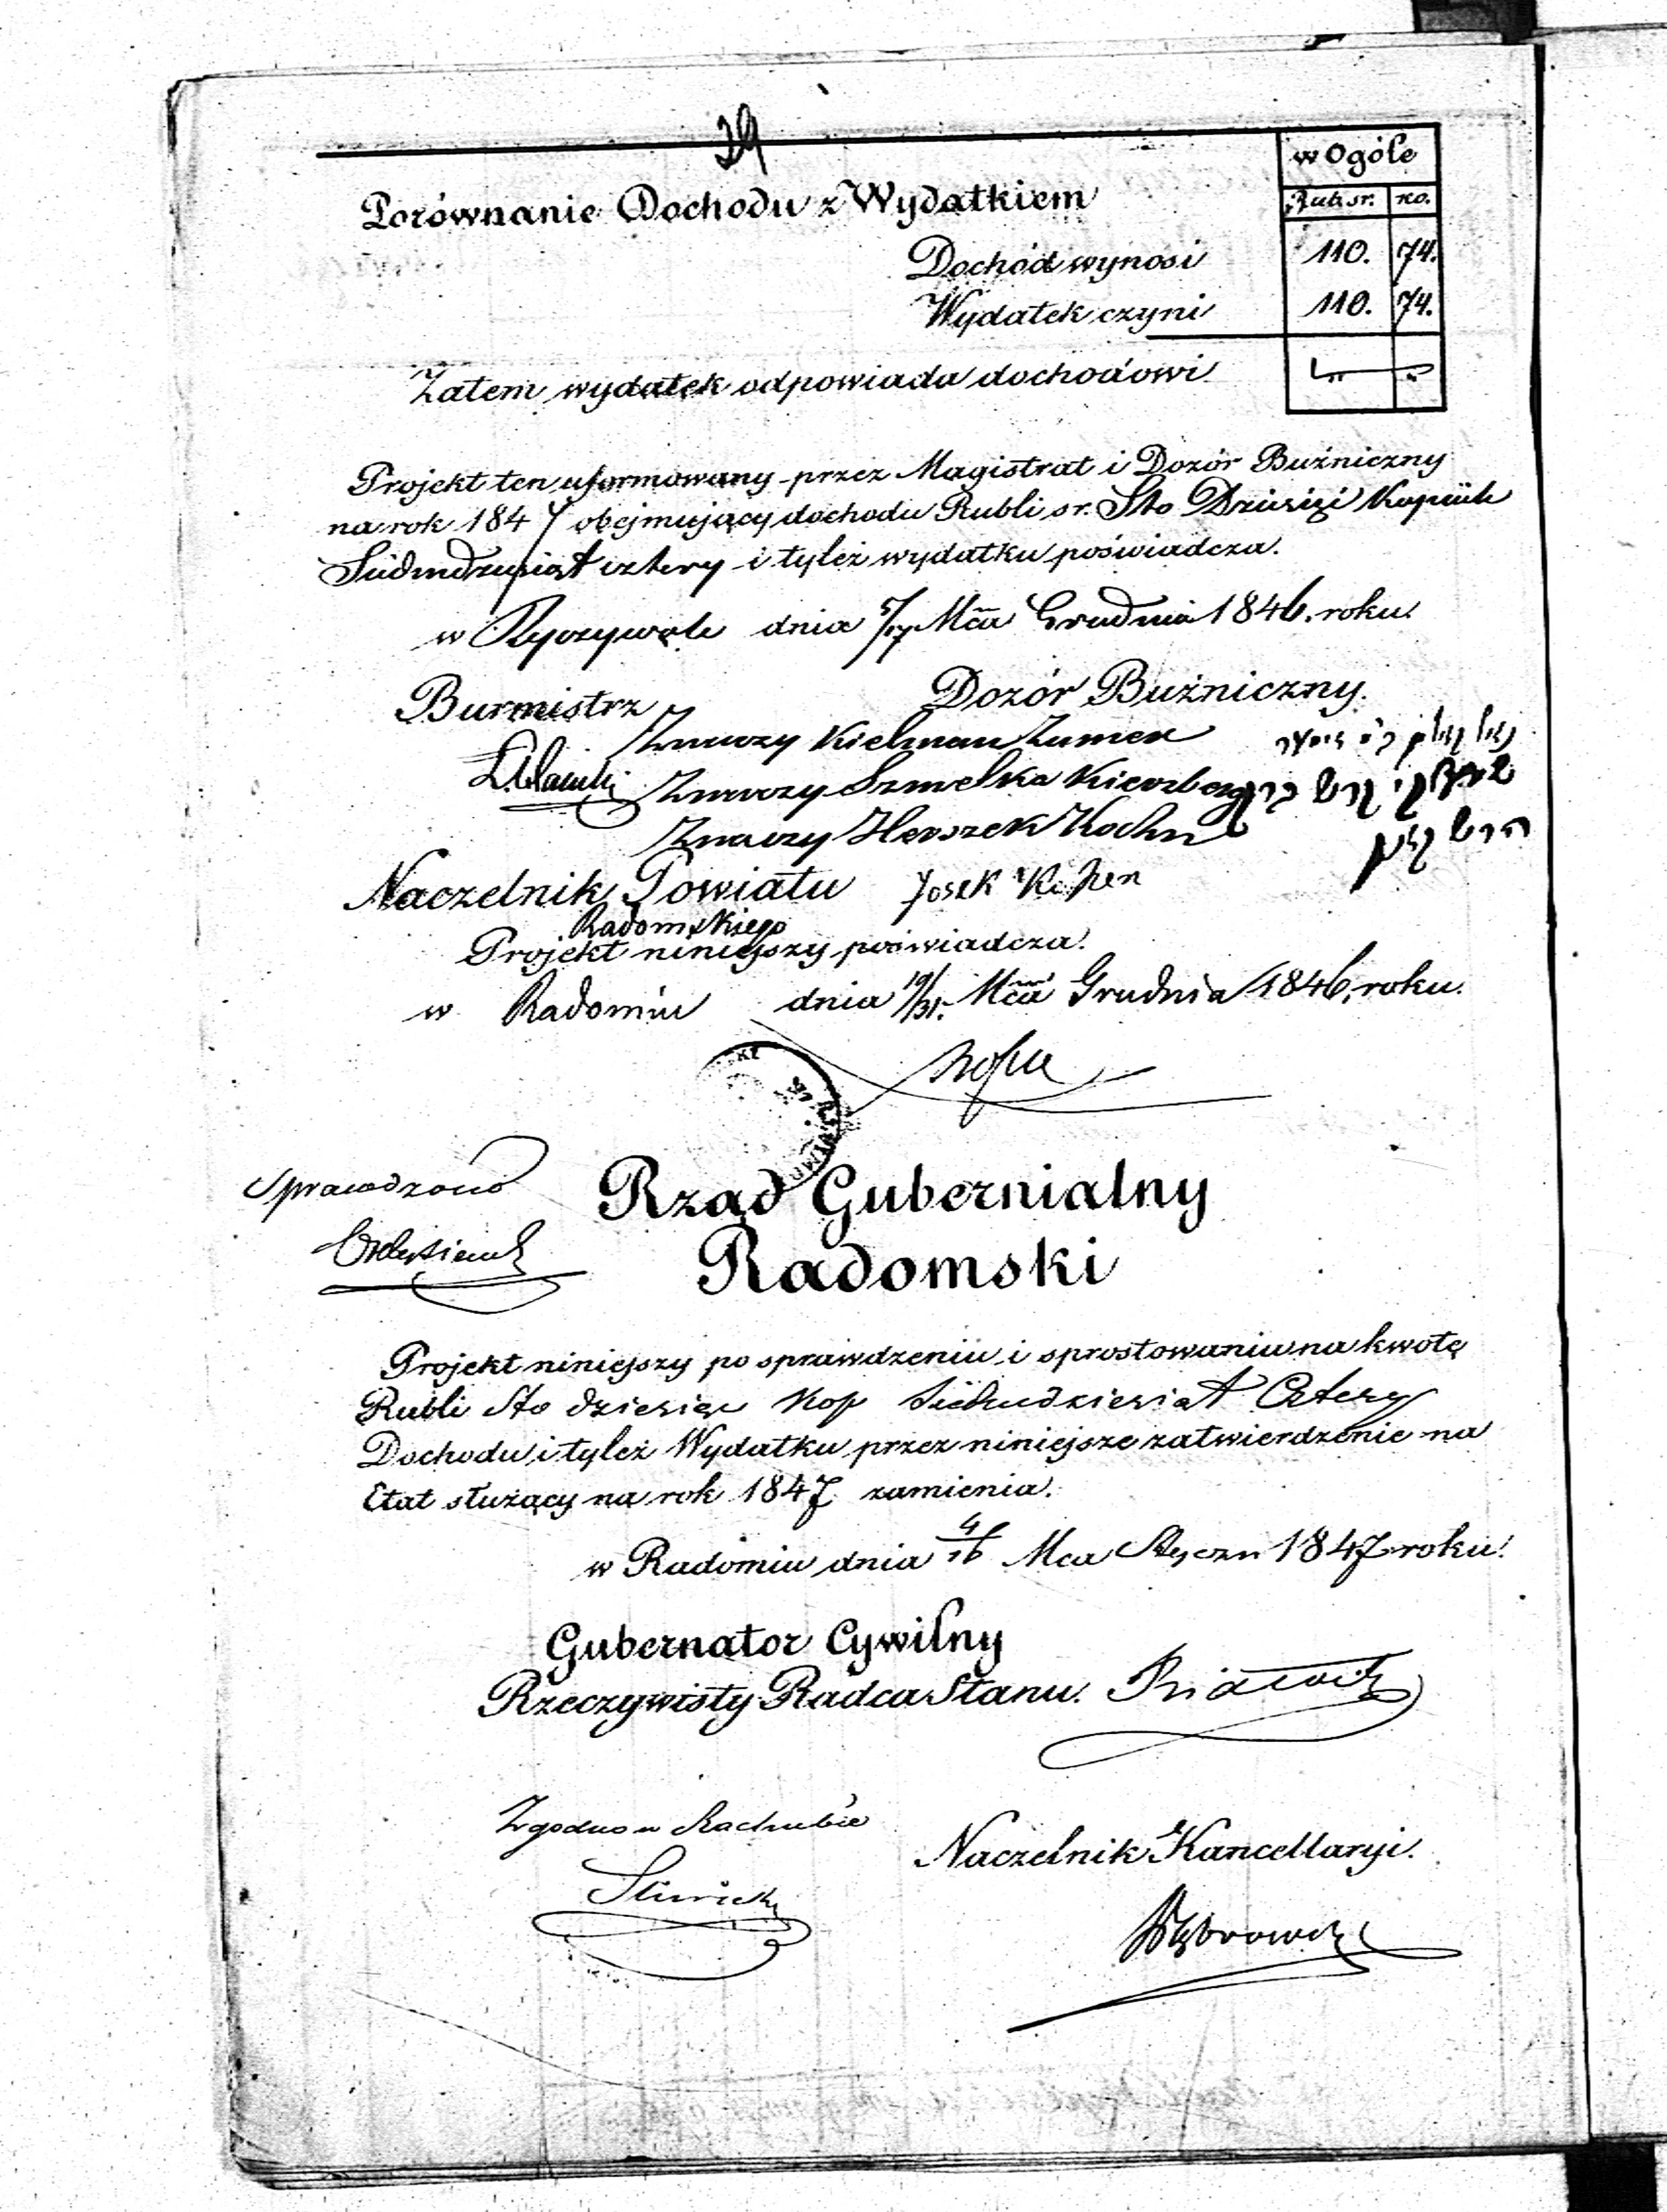 29
w Ogóle
Rub. sr. ko.
Porównanie Dochodu z Wydatkiem
Dochód wynosi 110. 74.
Wydatek czyni 110. 74.
Zatem wydatek odpowiada dochodowi
Projekt ten uformowany przez Magistrat i Dozór Buźniczny
na rok 1847 obejmujący dochodu Rubli sr. Sto Dziesięć Kopiiek
Siedmdziesiąt cztery i tyleż wydatku poświadcza.
w Ryczywole dnia 5/17 Mca Grudnia 1846. roku.
Burmistrz Dozór Buźniczny.
Znaczy Kielman Zumer
Znaczy Szmelka Kierszberg
Znaczy Herszek Kochn הרש קאן
Naczelnik Powiatu Josek Kohen
Radomskiego
Projekt niniejszy poświadcza.
w Radomiu dnia 19/31. Mca Grudnia 1846. roku.
Sprawdzono
Rząd Gubernialny
Radomski
Projekt niniejszy po sprawdzeniu i sprostowaniu na kwotę
Rubli Sto dziesięć Kop Siedmdziesiąt Cztery
Dochodu i tyleż Wydatku przez niniejsze zatwierdzenie na
Etat służący na rok 1847 zamienia.
w Radomiu dnia 4/16 Mca Styczn 1847 roku.
Gubernator Cywilny
Rzeczywisty Radca Stanu.
Zgodno w Rachubie
Naczelnik Kancellaryi.